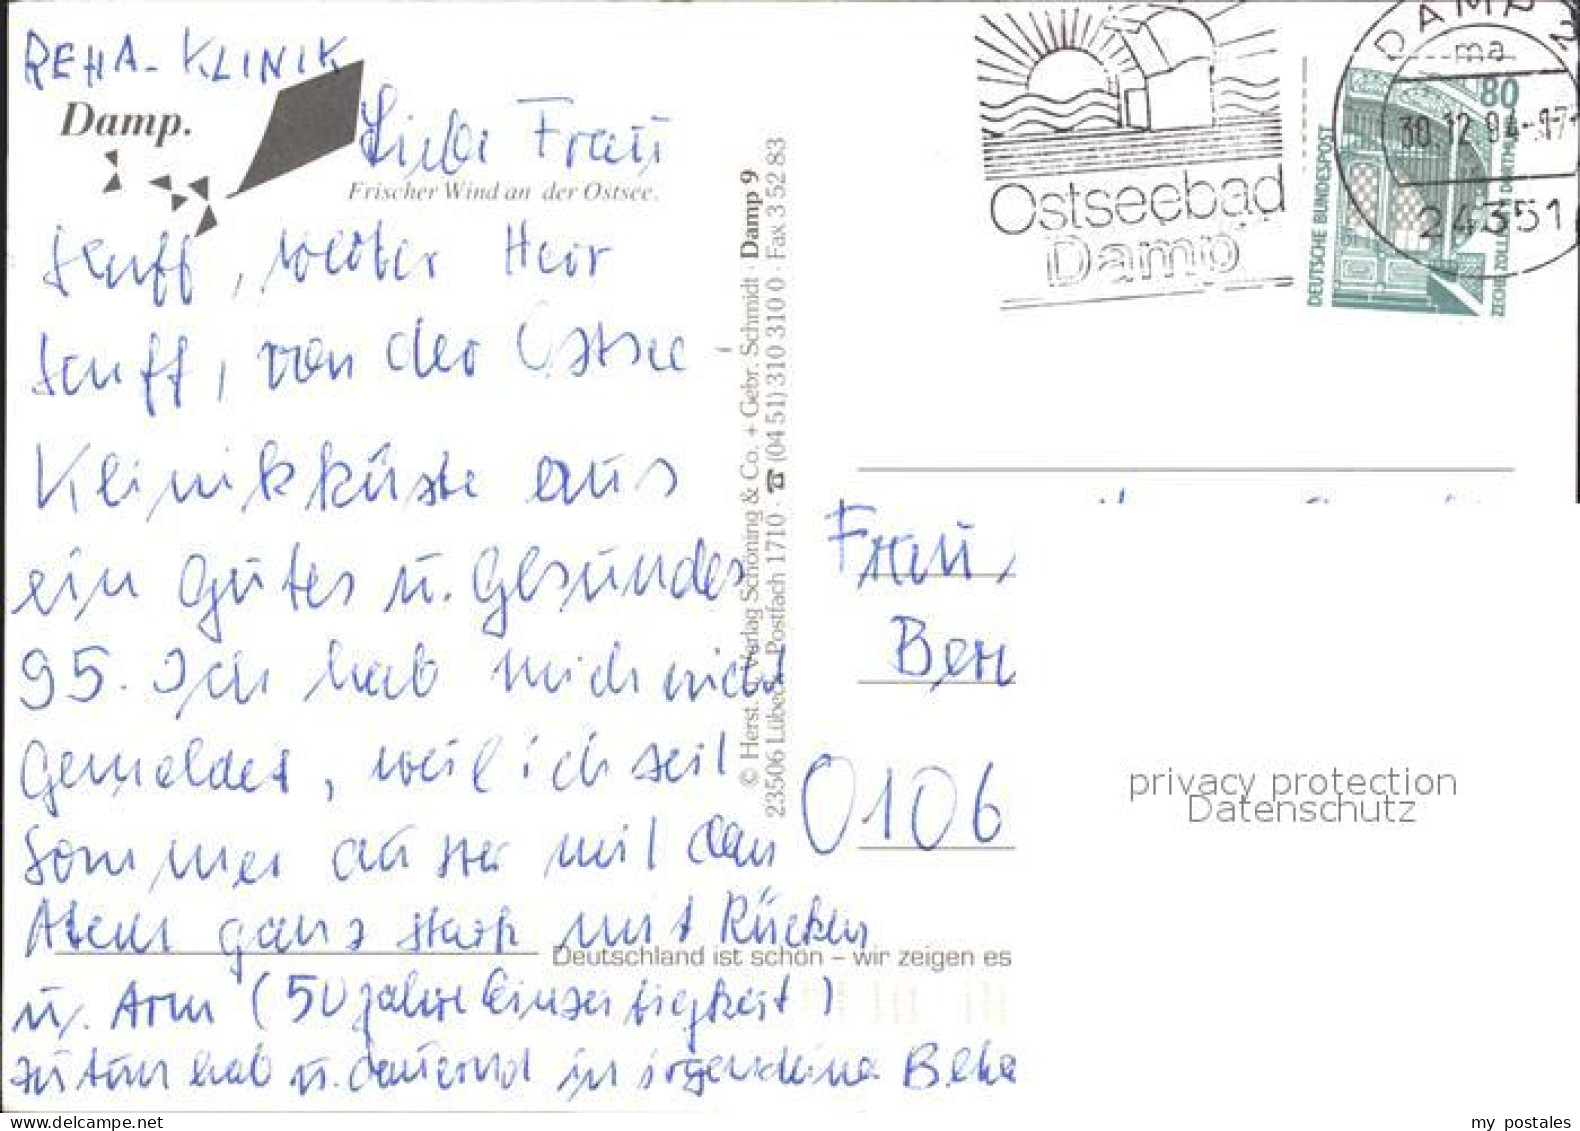 REHA-KLINIK
Damp.
Frischer Wind an der Ostsee.
Liebe Frau
Senff, werter Herr
Senff, von der Ostsee-
Klinikküste aus
ein gutes u. gesundes
95. Ich hab mich nicht
gemeldet, weil ich seit
Sommer außer mit dem
Atem ganz stark mit Rücken
u. Arm (50 Jahre Einseitigkeit)
zu tun hab u. dauernd in irgendeine Beha
© Herst. u. Verlag Schöning & Co. + Gebr. Schmidt · Damp 9
23506 Lübeck · Postfach 1710 · ☎ (04 51) 310 310 0 · Fax 3 52 83
Deutschland ist schön – wir zeigen es
Ostseebad
Damp
DAMP 2
ma
30.12.94-17
24351
80
DEUTSCHE BUNDESPOST
ZECHE ZOLLERN DORTMUND
Frau
Ber
0106
privacy protection
Datenschutz
my postales
www.delcampe.net